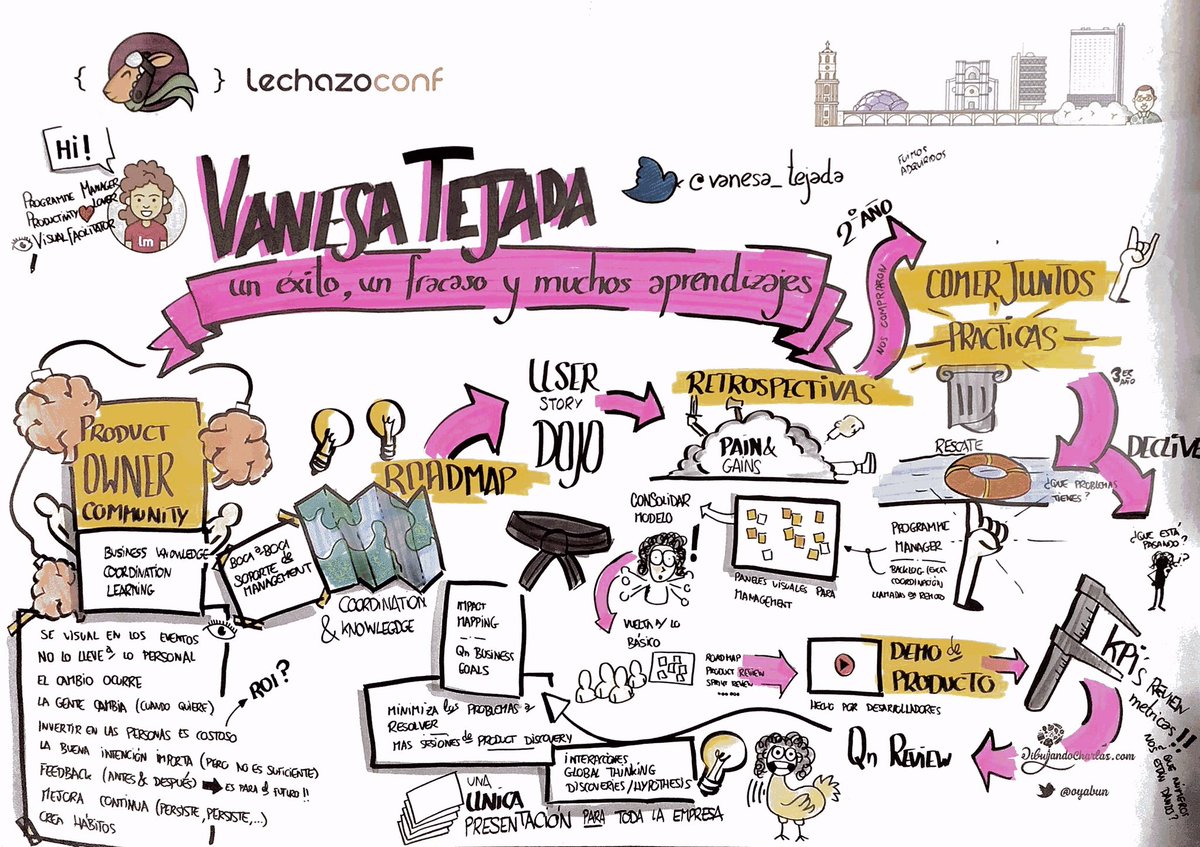 { } Lechazoconf
Hi!
PROGRAMME MANAGER
PRODUCTIVITY LOVER
VISUAL FACILITATOR
lm
VANESA TEJADA
@vanesa_tejada
un éxito, un fracaso y muchos aprendizajes
FUIMOS
ADQUIRIDOS
2º AÑO
NOS COMPRARON
COMER JUNTOS
PRACTICAS
3ER
AÑO
DECLIVE
PRODUCT
OWNER
COMMUNITY
BUSINESS KNOWLEDGE
COORDINATION
LEARNING
BOCA a BOCA
SOPORTE de
MANAGEMENT
ROADMAP
COORDINATION
& KNOWLEGDGE
USER
STORY
DOJO
RETROSPECTIVAS
PAIN &
GAINS
CONSOLIDAR
MODELO
!
PANELES VISUALES PARA
MANAGEMENT
VUELTA A LO
BÁSICO
RESCATE
¿QUE PROBLEMAS
TIENES?
PROGRAMME
MANAGER
COORDINACIÓN
LLAMADA DE REMOTO
¿QUE ESTÁ
PASANDO?
IMPACT
MAPPING
Qn BUSINESS
GOALS
MINIMIZA los PROBLEMAS a
RESOLVER
MAS SESIONES de PRODUCT DISCOVERY
ROADMAP
PRODUCT REVIEW
SPRINT REVIEW
DEMO de
PRODUCTO
HECHO POR DESARROLLADORES
KPi's
REVIEW
metricas?
!!
A QUE NÚMEROS
NOS ESTÁN
DANDO?
Qn REVIEW
INTERACIONES
GLOBAL THINKING
DISCOVERIES/HYPOTHESIS
UNA
UNICA
PRESENTACIÓN PARA TODA LA EMPRESA
SE VISUAL EN LOS EVENTOS
NO LO LLEVE a LO PERSONAL
EL CAMBIO OCURRE
LA GENTE CAMBIA (CUANDO QUIERE)
INVERTIR EN LAS PERSONAS ES COSTOSO
ROI?
LA BUENA INTENCIÓN IMPORTA (PERO NO ES SUFICIENTE)
FEEDBACK (ANTES & DESPUÉS) ES PARA el FUTURO!!
MEJORA CONTINUA (PERSISTE, PERSISTE,...)
CREA HÁBITOS
DibujandoCharlas.com
@oyabun